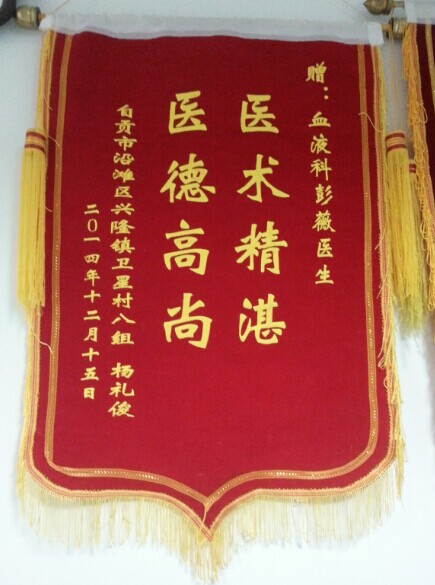 赠：血液科彭薇医生
医术精湛
医德高尚
自贡市沿滩区兴隆镇卫星村八组 杨礼俊
二〇一四年十二月十五日